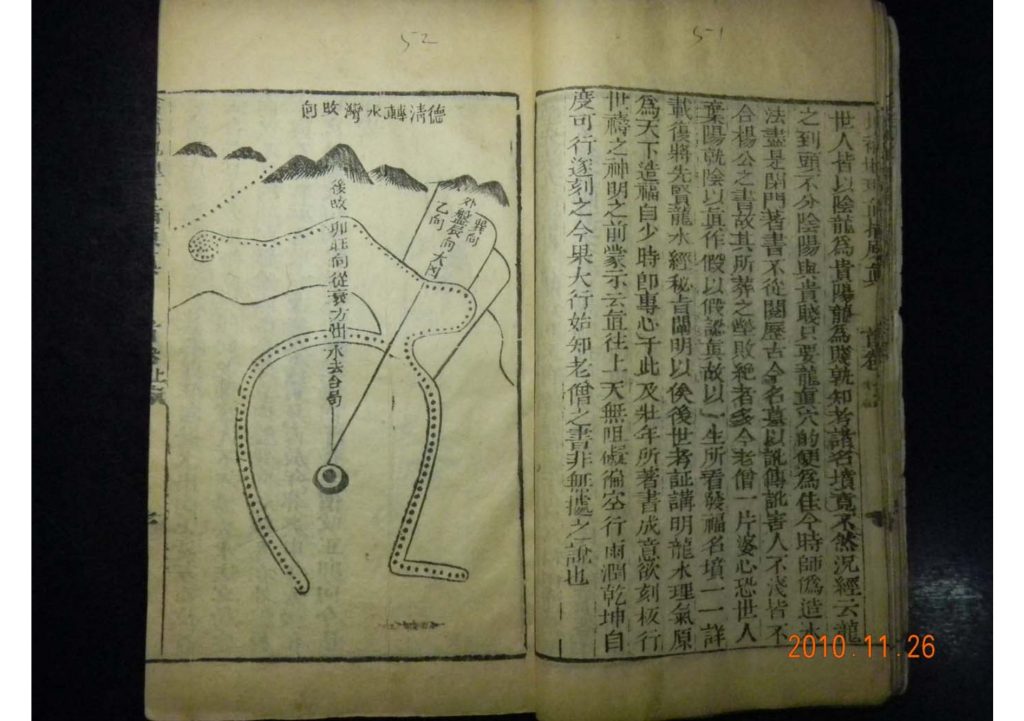 51
世人皆以陰龍為貴陽龍為賤孰知考諸名墳竟不然況經云龍
之到頭不分陰陽與貴賤只要龍眞穴的便為佳今時師偽造水
法盡是閉門著書不從閱歷古今名墓以訛傳訛害人不淺皆不
合楊公之書故其所葬之墳敗絕者多今老僧一片婆心恐世人
棄陽就陰以眞作假以假認眞故以一生所看發福名墳一一詳
載復將先賢龍水經秘旨闡明以俟後世考証講明龍水理氣原
為天下造福自少時卽專心于此及壯年所著書成意欲刻板行
世禱之神明之前蒙示云直往上天無阻礙徧空行雨潤乾坤自
度可行遂刻之今果大行始知老僧之書非無據之說也
52
德清轉水灣改向
巽向
外盤辰向大凶
乙向
後改卯旺向從衰方出水去合局
2010.11.26